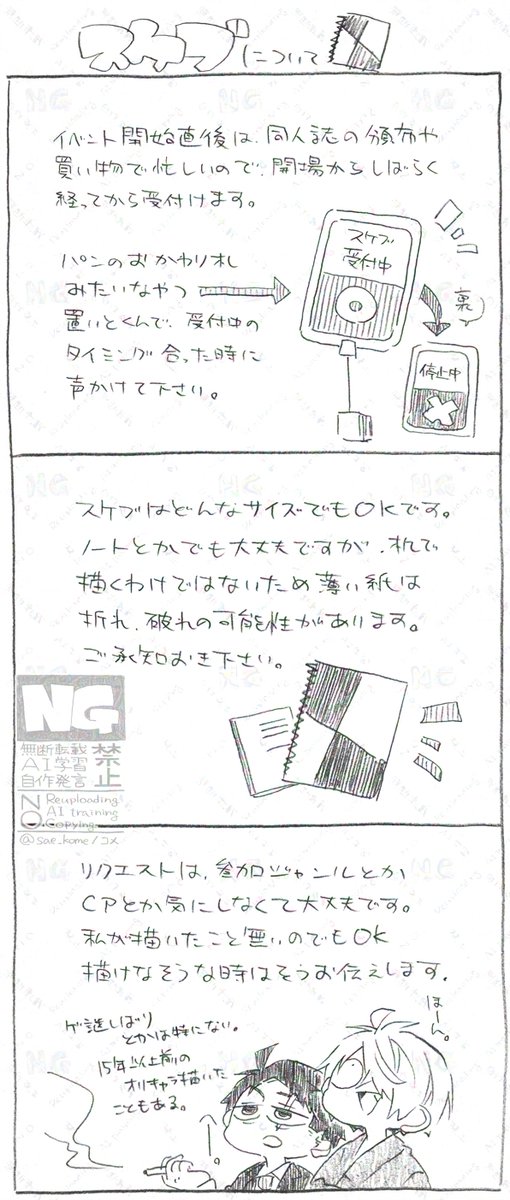 スケブについて
イベント開始直後は、同人誌の頒布や
買い物で忙しいので、開場からしばらく
経ってから受付けます。
パンのおかわり札
みたいなやつ
置いとくんで、受付中の
タイミング合った時に
声かけて下さい。
スケブ
受付中
裏
停止中
スケブはどんなサイズでもOKです。
ノートとかでも大丈夫ですが、机で
描くわけではないため薄い紙は
折れ、破れの可能性があります。
ご承知おき下さい。
NG
無断転載
AI学習
自作発言
禁止
NO
Reuploading
AI training
Copying
@sae_kome/コメ
リクエストは、参加ジャンルとか
CPとか気にしなくて大丈夫です。
私が描いたこと無いのでもOK
描けなそうな時はそうお伝えします。
ほーん。
ゲ謎しばり
とかは特にない。
15年以上前の
オリキャラ描いた
こともある。